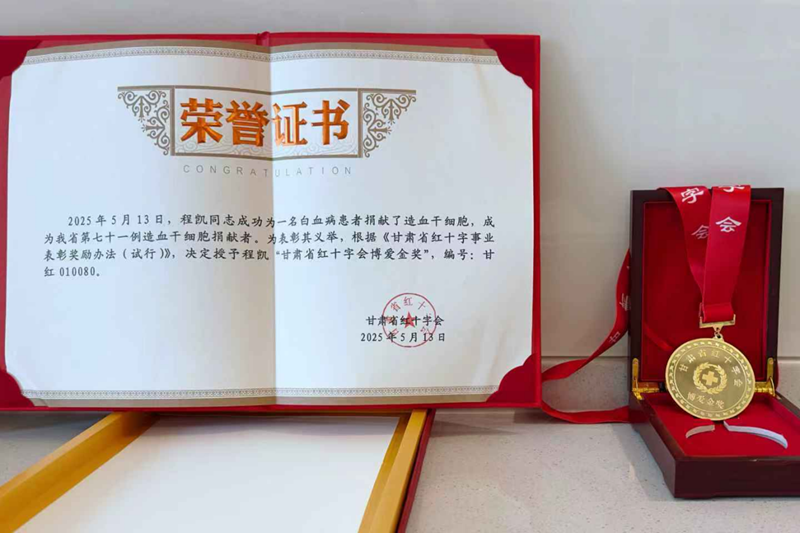 荣誉证书
CONGRATULATION
2025年5月13日，程凯同志成功为一名白血病患者捐献了造血干细胞，成
为我省第七十一例造血干细胞捐献者。为表彰其义举，根据《甘肃省红十字事业
表彰奖励办法（试行）》，决定授予程凯“甘肃省红十字会博爱金奖”，编号：甘
红010080。
甘肃省红十字会
2025年5月13日
字会
字会
甘肃省红十字会
博爱金奖